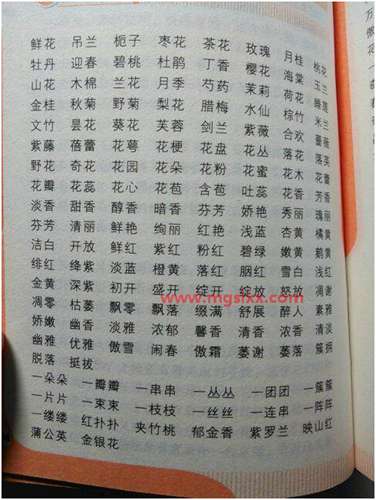 鲜花 吊兰 栀子 枣花 茶花 玫瑰 月桂 桃花
牡丹 迎春 碧桃 杜鹃 丁香 樱花 海棠 玉兰
山花 木棉 兰花 月季 芍药 茉莉 荷花 睡莲
金桂 秋菊 野菊 梨花 腊梅 水仙 棕竹 米兰
文竹 昙花 葵花 芙蓉 剑兰 紫薇 合欢 蔷薇
紫藤 蓓蕾 花萼 花梗 花盘 花丛 落花 落英
野花 奇花 花园 花朵 花粉 花蜜 花木 花香
花瓣 花蕊 花心 花苞 含苞 吐蕊 花香 芳香
淡香 甜香 醇香 暗香 芬芳 娇艳 秀丽 瑰丽
芬芳 清丽 鲜艳 绚丽 红艳 浅蓝 杏黄 橘黄
洁白 开放 鲜红 紫红 粉红 碧绿 嫩黄 鹅黄
绯红 绛紫 淡蓝 橙黄 落红 胭红 雪白 浅红
金黄 深紫 初开 盛开 绽开 绽放 怒放 凋谢
凋零 枯萎 飘零 飘落 缀满 舒展 醉人 素雅
娇嫩 幽香 淡雅 浓郁 馨香 清香 浓香 清淡
幽雅 优雅 傲雪 闹春 傲霜 萎谢 萎落 簇拥
脱落 挺拔
www.mgsixx.com
一朵朵 一瓣瓣 一串串 一丛丛 一团团 一簇簇
一片片 一束束 一枝枝 一丝丝 一连串 一阵阵
一缕缕 红扑扑 夹竹桃 郁金香 紫罗兰 映山红
蒲公英 金银花
万